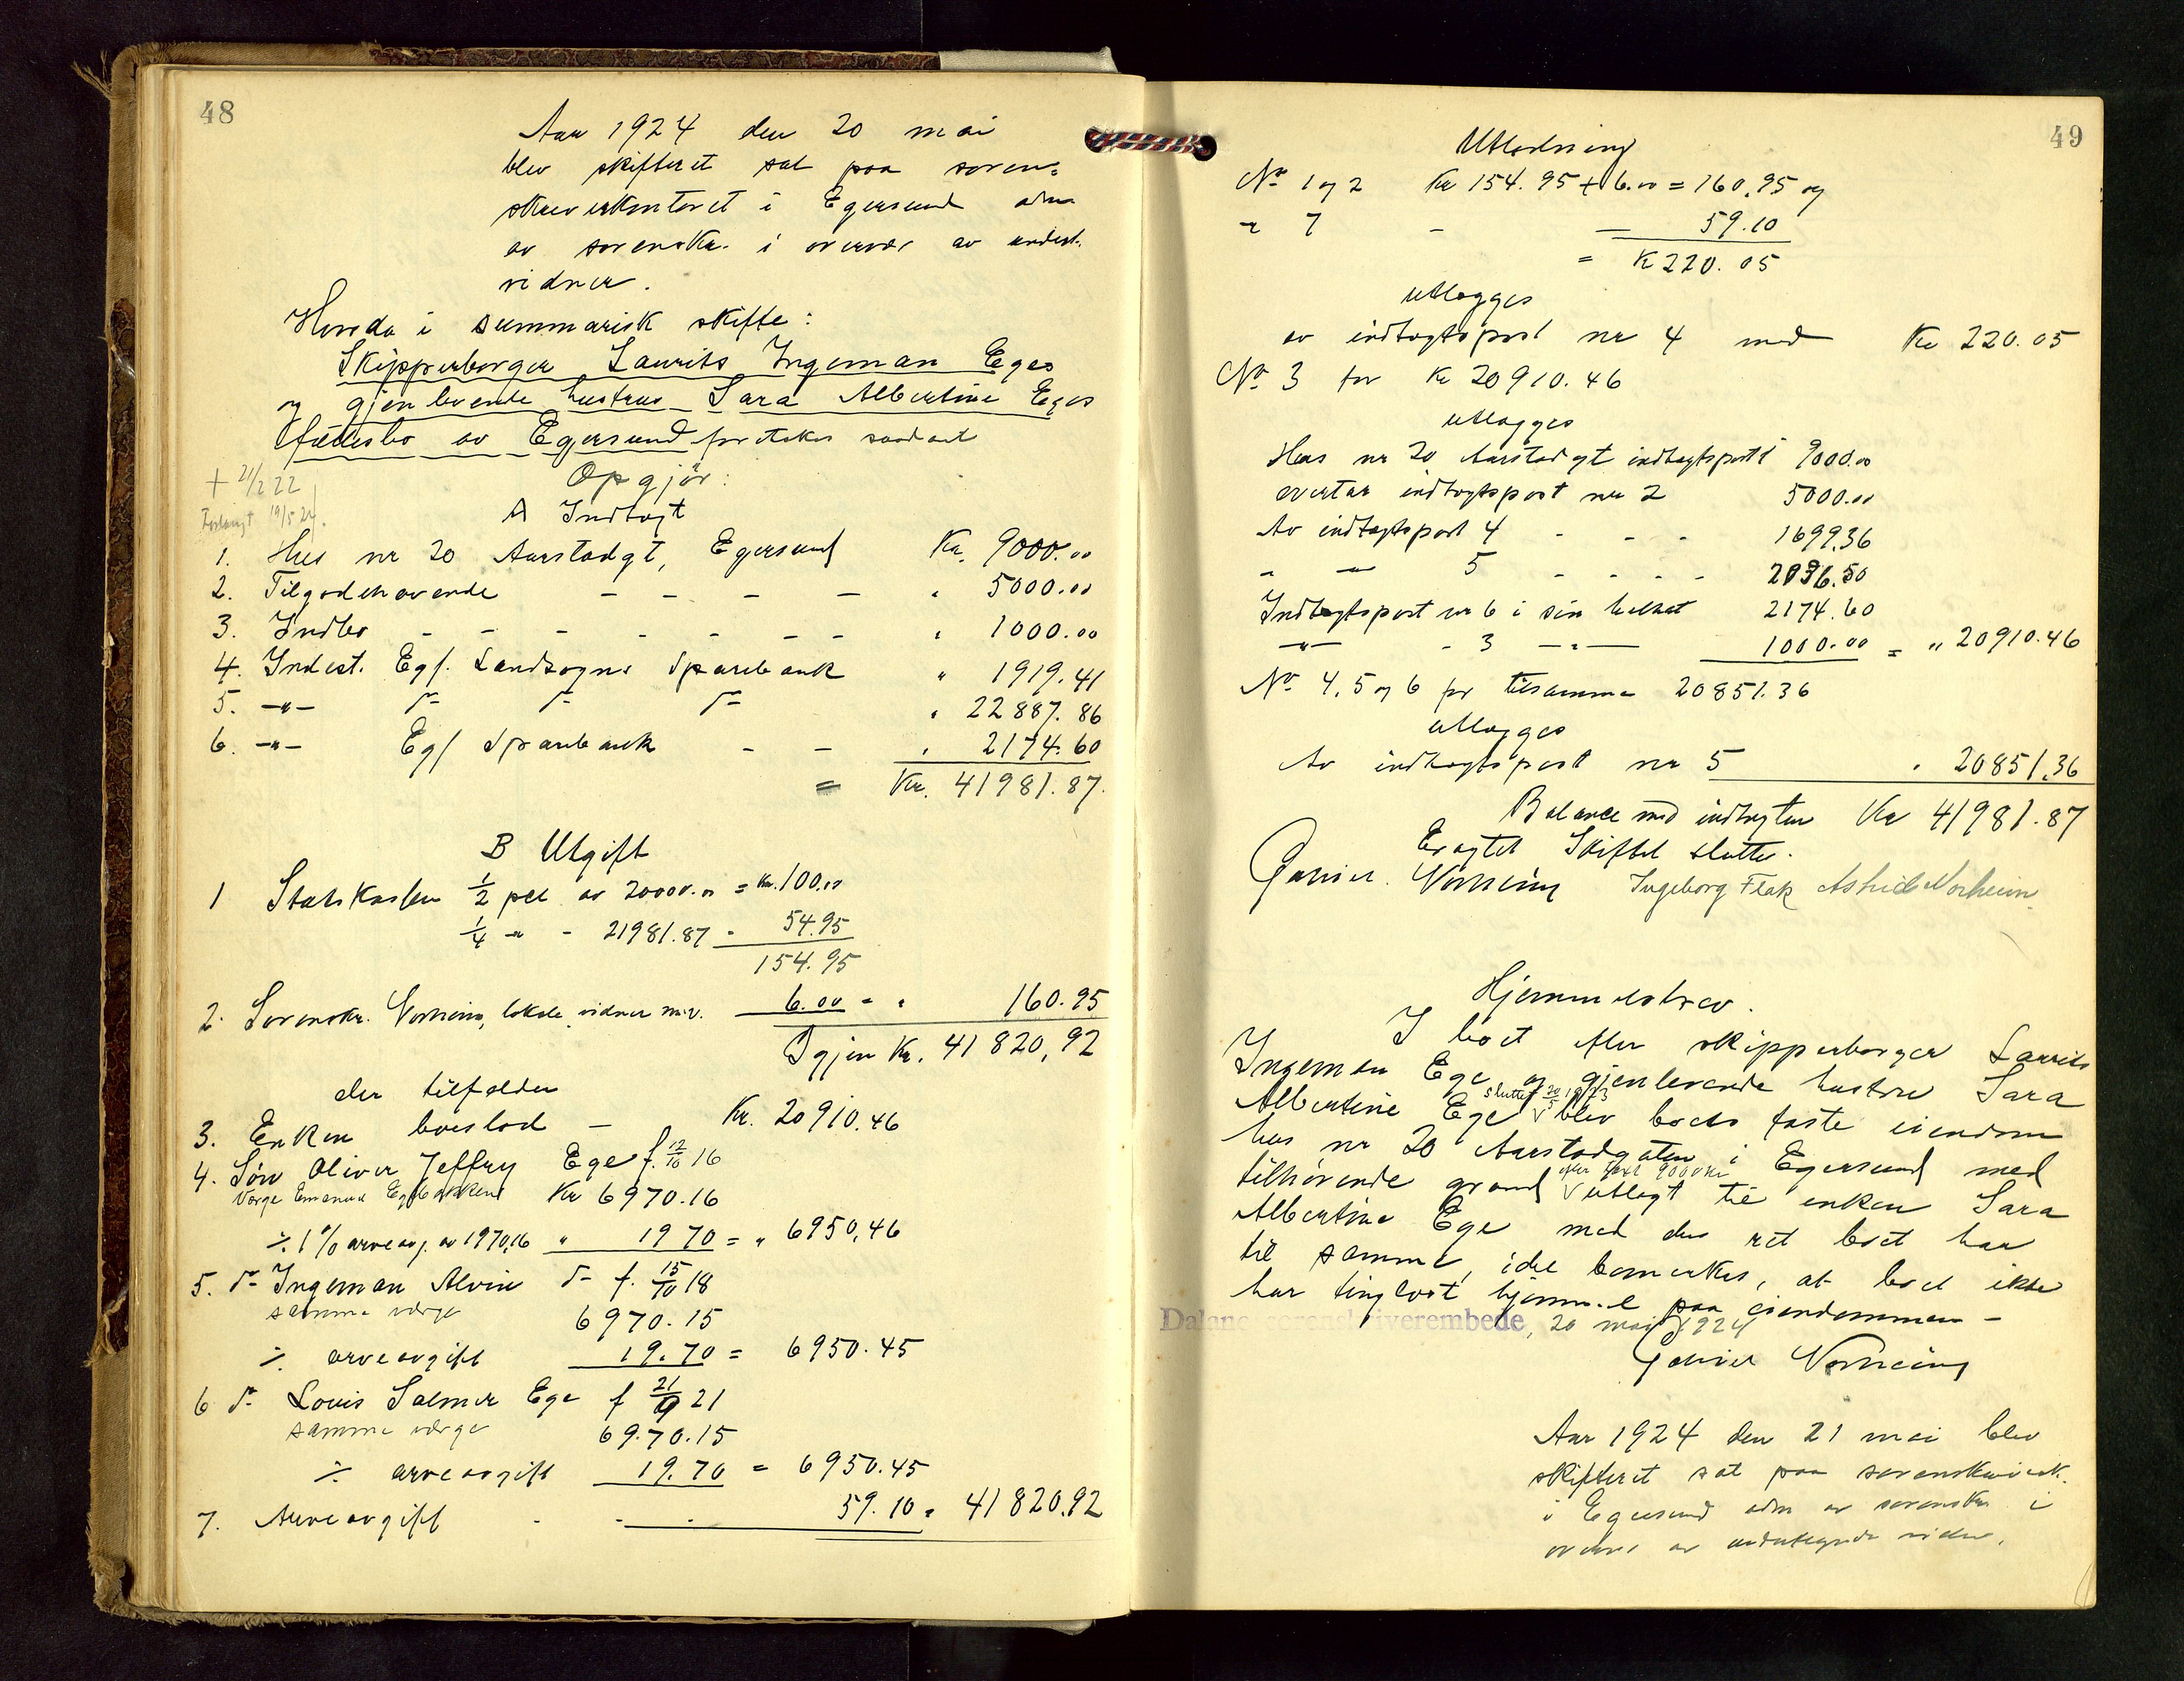 48
Aar 1924 den 20 mai
blev skifteret sat paa soren=
skriverkontoret i Egersund adm
av sorenskr. i overvær av undert.
vidner.
Hvorda i summarisk skifte:
Skipperborger Laurits Ingeman Eges
og gjenlevende hustrus Sara Albertine Eges
fællesbo av Egersund foretokes saadant
+ 21/2 22
Forlangt 19/5 24.
Opgjør:
A Indtægt
1. Hus nr 20 Aarstadgt, Egersund Kr. 9000.00
2. Tilgodehavende - - - - " 5000.00
3. Indbo - - - - - - - " 1000.00
4. Indest. Egs. Landsogns Sparebank " 1919.41
5. -"- d- d- d- " 22887.86
6. -"- Egs Sparebank - - " 2174.60
= Kr. 41981.87.
B Utgift
1 Statskassen 1/2 pct av 20000.00 = Kr. 100.00
1/4 " - 21981.87 - 54.95
154.95
2. Sorenskr. Norheim, lokale vidner m.v. 6.00 = " 160.95
Igjen Kr. 41820,92
der tilfalder
3. Enken boeslod - Kr. 20910.46
4. Søn Oliver Jeffry Ege f. 12/10 16
Værge Emanuel Egebakken Kr 6970.16
÷ 1% arveavg. av 1970,16 " 19 70 = " 6950,46
5. do Ingeman Alvin d- f. 15/10 18
samme værge 6970.15
÷ arveavgift 19.70 = 6950.45
6 do Louis Salmer Ege f 21/9 21
samme værge 6970.15
÷ arveavgift 19.70 = 6950.45
7. Arveavgift - - - 59.10 = 41820.92
49
Utlodning
No 1 og 2 Kr 154.95 + 6.00 = 160.95 og
" 7 - — 59.10
= K 220.05
utlægges
av indtægtspost nr 4 med Kr 220.05
No 3 for Kr 20910.46
utlægges
Hus nr 20 Aarstadgt indtægtspost 1 9000.00
overtar indtægtspost nr 2 5000.00
Av indtægtspost 4 - - - 1699.36
" — 5 - - - - 2036.50
Indtægtspost nr 6 i sin helhet 2174.60
—"— - 3 —"— 1000.00 = " 20910.46
No 4, 5 og 6 for tilsammen 20851.36
utlægges
Av indtægtspost nr 5 " 20851.36
Balance med indtægten Kr 41981.87
Eragtet Skiftet sluttet.
Gabriel Norheim Ingeborg Flak Astrid Norheim
Hjemmelsbrev.
I boet efter skipperborger Laurits
Ingeman Ege og gjenlevende hustru Sara
sluttet 20/5 1923
Albertine Ege V blev boets faste eiendom
hus nr 20 Aarstadgaten i Egersund med
efter takst 9000 kr
tilhørende grund V utlagt til enken Sara
Albertine Ege med den ret boet har
til samme, idet bemerkes, at boet ikke
har tinglæst hjemmel paa eiendommen -
Dalane sorenskriverembede, 20 mai 1924
Gabriel Norheim
Aar 1924 den 21 mai blev
skifteret sat paa sorenskriverk.
i Egersund adm av sorenskr. i
overv. av undertegnede vidner.